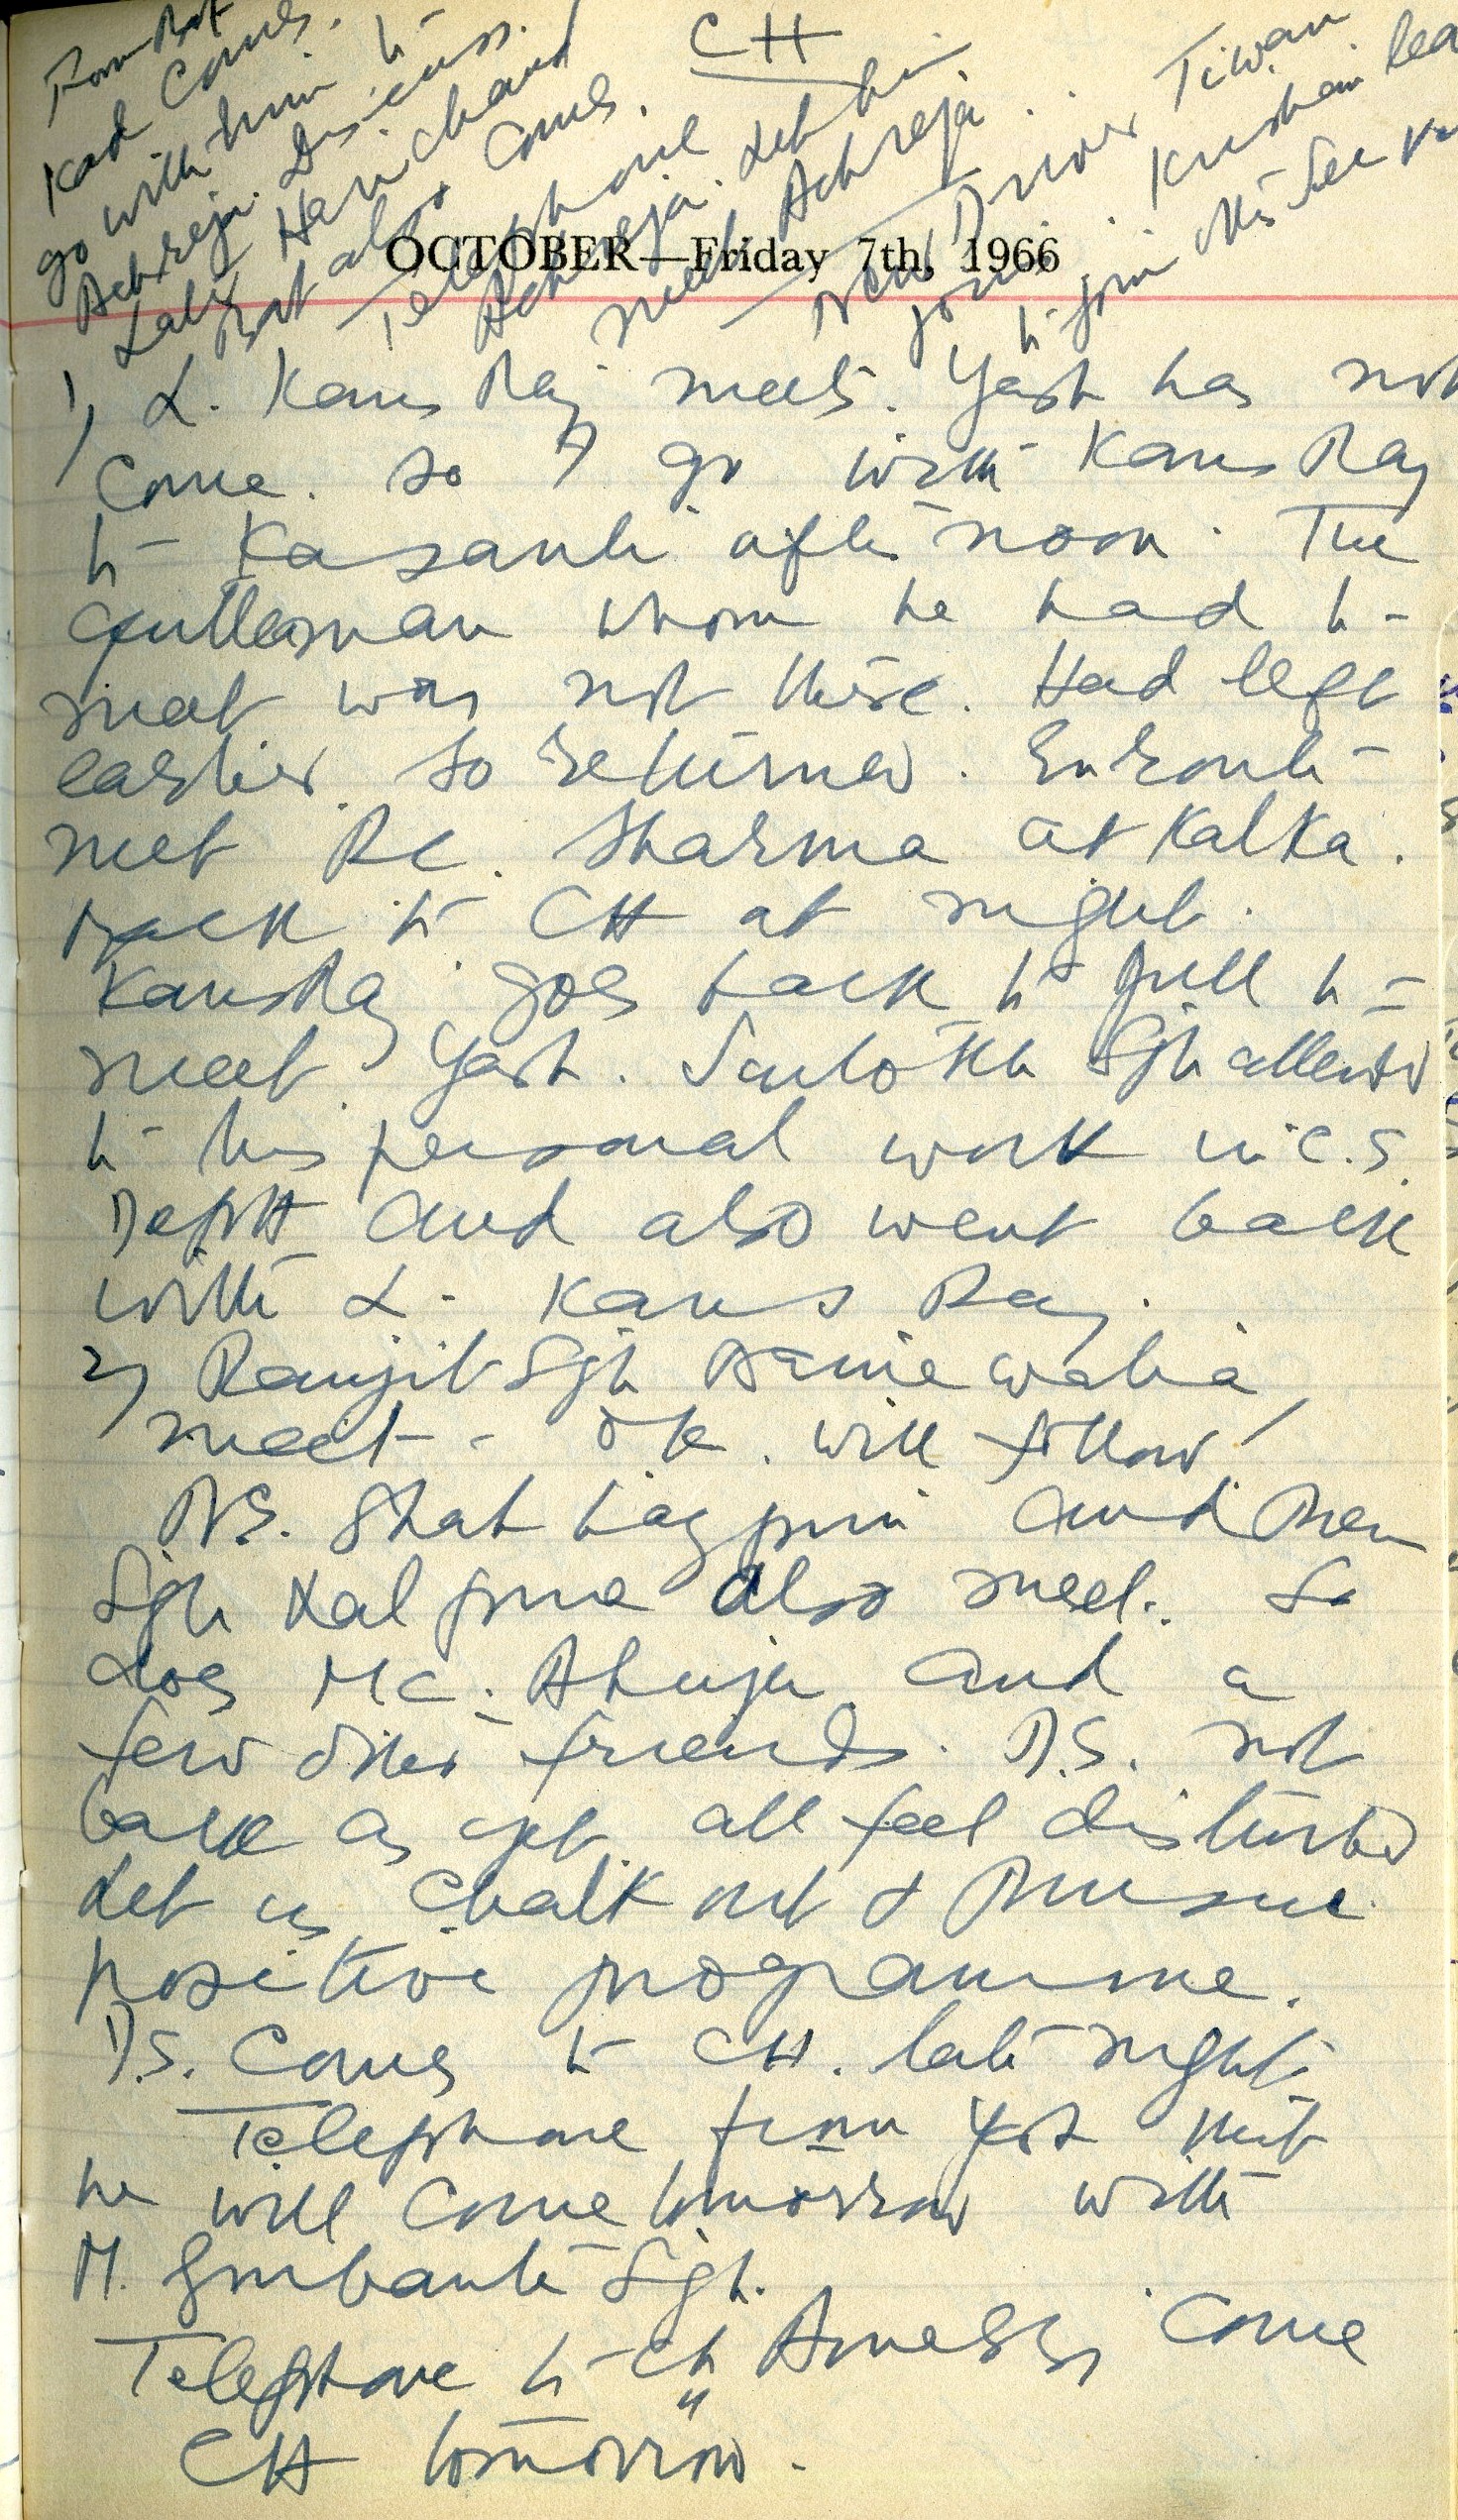 CH
Ram Rat
Kad Comes.
go with him to
Achreja. Discuss.
Lab Hari Chand
Bat also Comes.
Telephone
Achreja. Let him
meet Achreja.
New Driver Tiwari
joins. Krishan
to join
OCTOBER—Friday 7th, 1966
1) L. Kans Raj meets. Yash has not
come. So I go with Kans Raj
to Kasauli afternoon. The
gentleman whom he had to
meet was not there. Had left
earlier. So returned. Enroute
met R.C. Sharma at Kalka.
Back to CH at night.
Kans Raj goes back to Jull to
meet Yash. Santokh Sgh attended
to his personal work in C.S.
Deptt and also went back
with L. Kans Raj.
2) Ranjit Sgh walia
meet - OK. will follow
D.S. Shat and Prem
Sgh Lalpura also meet. So
does M.C. Ahuja and a
few other friends. D.S. not
back as yet. All feel disturbed
Let us chalk out & Pursue
positive programme.
D.S. Comes to CH. late night.
Telephone from Yash that
he will come tomorrow with
M. Gurbanta Sgh.
Telephone to Ch Amar Sgh, Come
CH tomorrow.